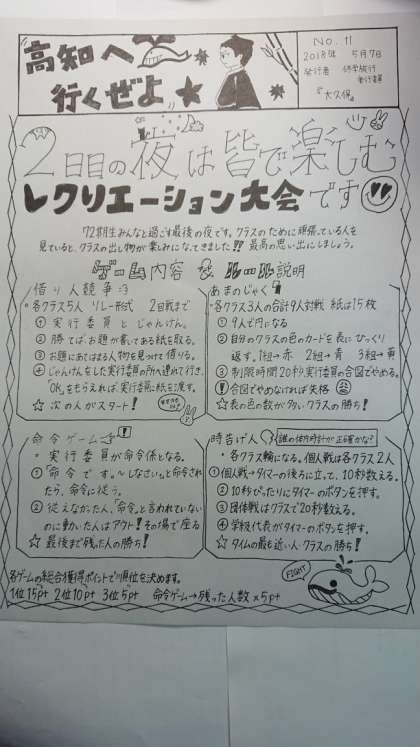 高知へ
行くぜよ!!★
No. 11
2018年 5月7日
発行者 修学旅行
実行委員
『大久保』
2日目の夜は皆で楽しむ
レクリエーション大会です
72期生みんなと過ごす最後の夜です。クラスのために頑張っている人を
見ていると、クラスの出し物が楽しみになってきました!! 最高の思い出にしましょう。
ゲーム内容 & ルール説明
借り人競争:3
・各クラス5人 リレー形式 2回戦まで
① 実行委員とじゃんけん。
② 勝てばお題が書いてある紙を取る。
③ お題にあてはまる人物を見つけて借りる。
④ じゃんけんをした実行委員の所へ連れて行き、
「OK」をもらえれば実行委員に紙を渡す。
☆ 次の人がスタート!
あまのじゃく
・各クラス3人の合計9人対戦 紙は15枚
① 9人で円になる
② 自分のクラスの色のカードを表にひっくり
返す。1組→赤 2組→青 3組→黄
③ 制限時間20秒、実行委員の合図でやめる。
! 合図でやめなければ失格
☆ 表の色の数が多いクラスの勝ち!
命令ゲーム
・実行委員が命令係となる。
①「命令です。~しなさい。」と命令され
たら、命令に従う。
② 従えなかった人、「命令」と言われていない
のに動いた人はアウト!その場で座る
☆ 最後まで残った人の勝ち!
時告げ人 誰の体内時計が正確かな?
・各クラス輪になる。個人戦は各クラス2人
① 個人戦→タイマーの後ろに立って、10秒数える。
② 10秒ぴったりにタイマーのボタンを押す。
③ 団体戦はクラスで20秒数える。
④ 学級代表がタイマーのボタンを押す。
☆ タイムの最も近い人・クラスの勝ち!
各ゲームの総合獲得ポイントで順位を決めます。
1位15pt 2位10pt 3位5pt 命令ゲーム→残った人数×5pt
FIGHT